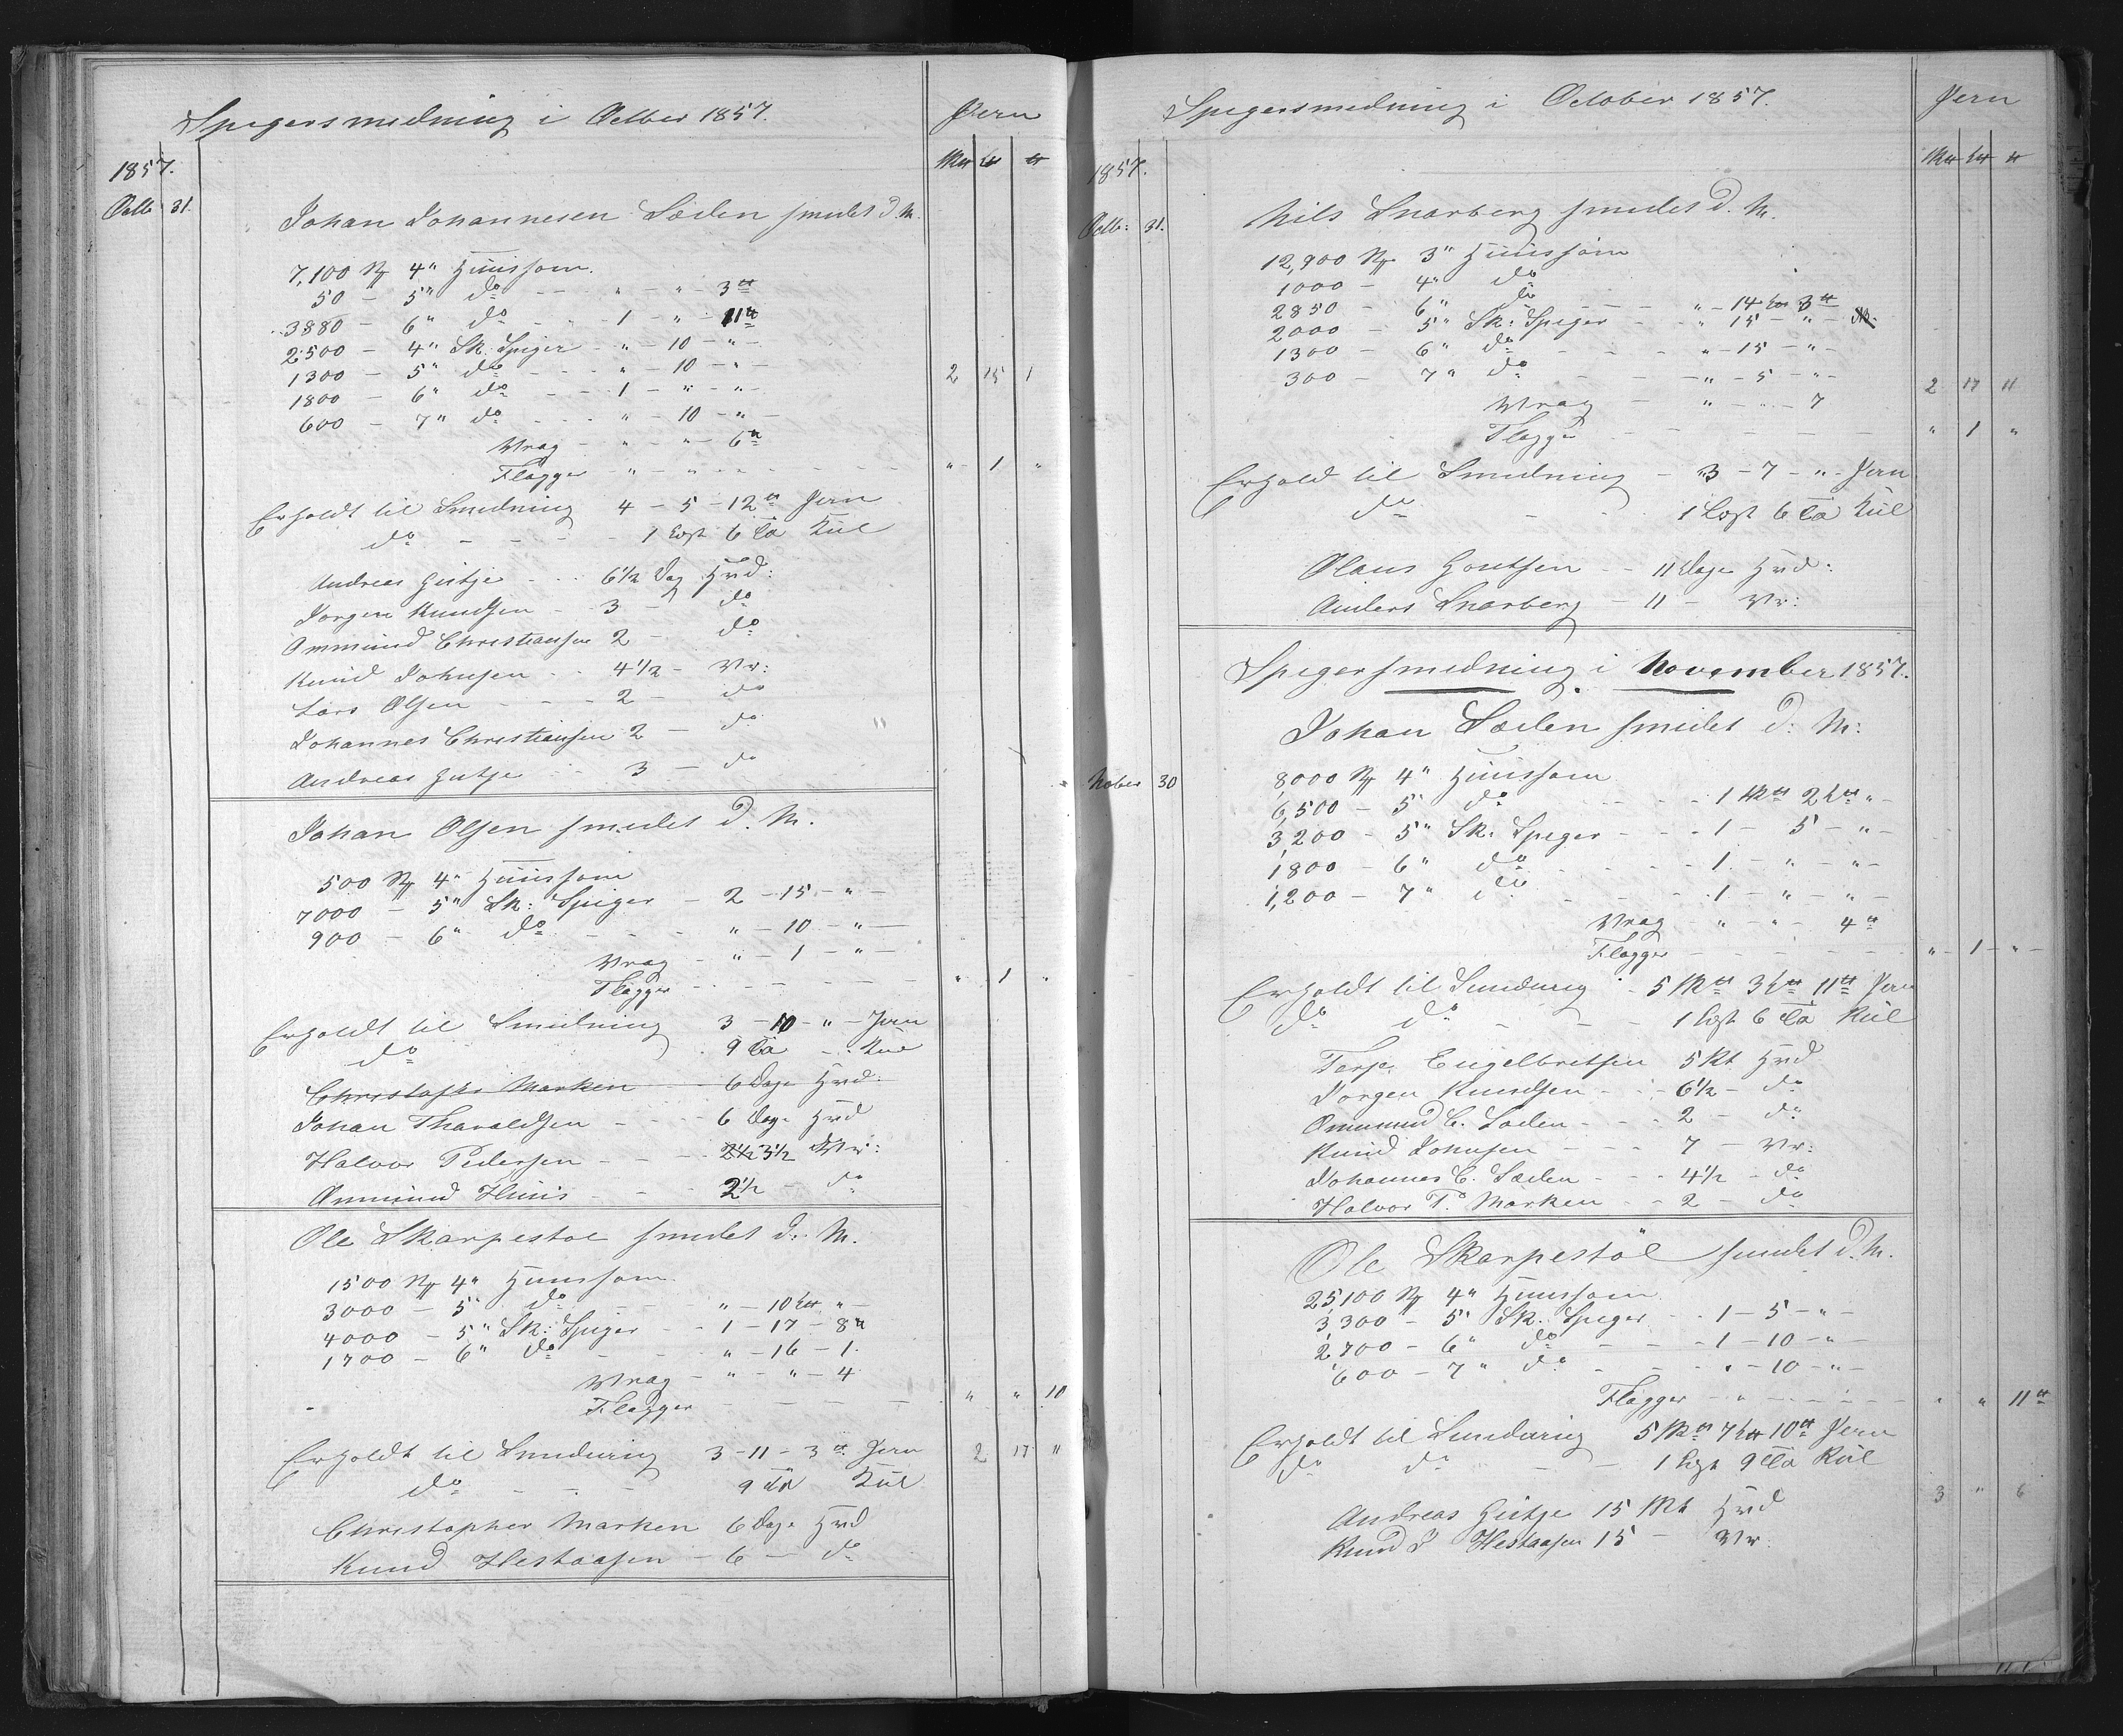 Spigersmedning i Octber 1857.
Jern
1857.
Octb 31.
Johan Johannesen Lælen smedet d. M.
7,100 4" Huussøm.
50 — 5" do " — " — 3
3880 — 6" do 1 — " — 11
2500 — 4" Sk. Spiger " — 10 — "
1300 — 5" do " — 10 — "
1800 — 6" do 1 — " — "
600 — 7" do " — 10 — "
2 15 1
Vrag " — " — 6
Flagger " 1 "
Erholdt til Smedning 4 — 5 — 12 Jern
do 1 Lest 6 Tø Kul
Andreas Gutje 6½ Dag Hvd:
Jørgen Knudsen 3 — do
Ammund Christiansen 2 — do
Knud Johnsen 4½ — Vr:
Lars Olsen 2 — do
Johannes Christiansen 2 — do
Andreas Gutje 3 — do
Johan Olsen smedet d. M.
500 4" Huussøm
7000 — 5" Sk: Spiger — 2 — 15 — "
900 — 6" do " — 10 — "
Vrag " — 1 — "
Flagger " 1 "
Erholdt til Smedning 3 — 10 — " Jern
do 9 Tø Kul
Christopher Marken 6 Dage Hvd:
Johan Tharaldsen 6 Dage Hvd
Halvor Pedersen 2½ 3½ Vr:
Ammund Huus 2½ do
Ole Skarpestøl smedet d. M.
1500 4" Huussøm
3000 — 5" do " — 10 "
4000 — 5" Sk: Spiger 1 — 17 — 8
1700 — 6" do " — 16 — 1.
Vrag " — " — 4
Flagger " " 10
Erholdt til Smedning 3 — 11 — 3 Jern 2 17 "
do 9 Tø Kul
Christopher Marken 6 Dage Hvd
Knud Hestaasen — 6 — do
Spigersmedning i October 1857.
Jern
1857.
Octb: 31.
Nils Snarberg smedet d. M.
12,900 3" Huussøm
1000 — 4" do
2850 — 6" do " — 14 3
2000 — 5" Sk: Spiger " 15 — "
1300 — 6" do " — 15 — "
300 — 7" do " — 5 — "
2 17 11
Vrag " 7
Flagger " 1 "
Erhold til Smedning — 3 — 7 — " — Jern
do 1 Lest 6 Tø Kul
Olaus Goutsen 11 Dage Hvd:
Anders Snarberg — 11 — Vr:
Spigersmedning i November 1857.
Johan Lælen smedet d: M:
Nober 30
8000 4" Huussøm
6,500 — 5 do 1 2 "
3,200 — 5" Sk: Spiger 1 — 5 — "
1800 — 6" do 1 — " — "
1,200 — 7" do 1 — " — "
Vrag " — " — 4
Flagger " 1 "
Erholdt til Smedning 5 3 11 Jern
do do 1 Lest 6 Tø Kul
Terje Engelbretsen 5 Hvd
Jørgen Knudsen 6½ — do
Ommund C. Lælen 2 — do
Knud Johnsen 7 — Vr:
Johannes C. Lælen 4½ — do
Halvor P. Marken 2 — do
Ole Skarpestøl smedet d. M.
25,100 4" Huussøm
3,300 — 5" Sk. Spiger 1 — 5 — "
2,700 — 6" do 1 — 10 — "
600 — 7" do " — 10 — "
Flagger " " 11
Erholdt til Smedning 5 7 10 Jern
do do 1 Lest 9 Tø Kul
3 " 6
Andreas Gutje 15 Hvd
Knud Hestaasen 15 — Vr.